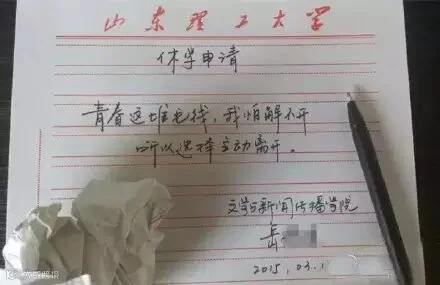 山东理工大学
休学申请
青春这堆毛线，我怕解不开
所以选择主动离开。
文学与新闻传播学院
岳
2015.03.1